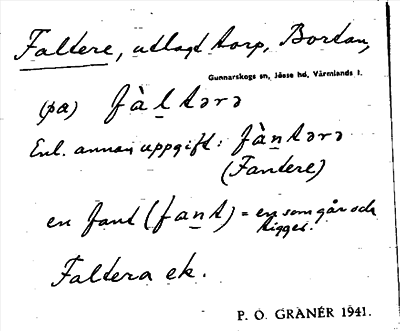 Faltere, utlagt torp, Bortan,
Gunnarskogs sn, Jösse hd, Värmlands l.
(på) fàl̠tərə
Enl. annan uppgift: fàn̠tərə
(Fantere)
en fant (fan̠t) = en som går och
tigger.
Faltera ek.
P. O. GRANÉR 1941.